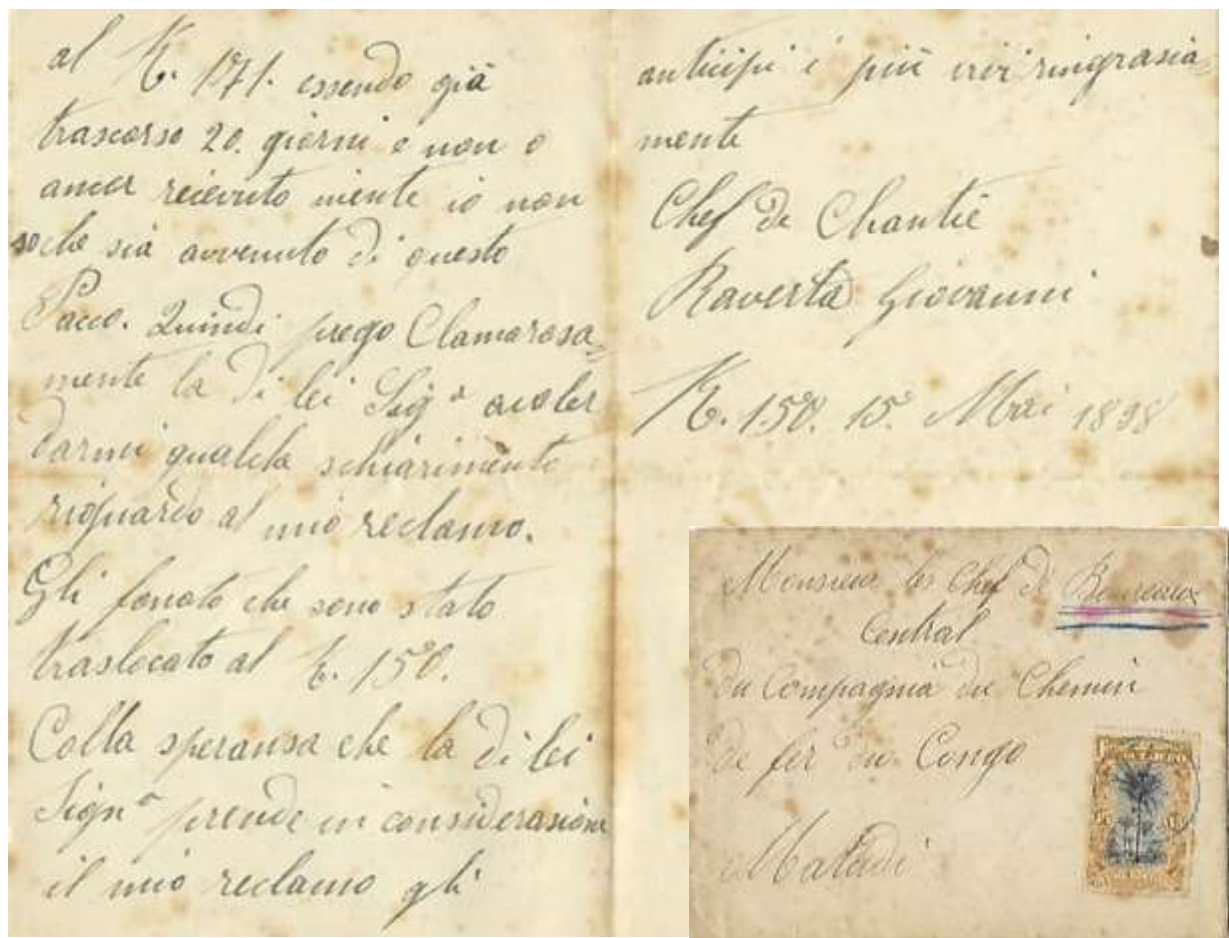 al K. 171. essendo già
trascorso 20. giorni e non o
ancor ricevuto niente io non
so che sia avvenuto di questo
Pacco. Quindi prego Clamorosa=
mente la di lei Sigª a voler
darmi qualche schiarimento
riguardo al mio reclamo.
Gli fo noto che sono stato
traslocato al K. 150.
Colla speransa che la di lei
Signª prende in considerasione
il mio reclamo gli
anticipi i più vivi ringrasia=
mente
Chef de Chantié
Raverta Giovanni
K. 150. 15. Mai 1898
Monsieur les Chef de Boureaux
Central
du Compagnia du Chemin
de fer du Congo
Matadi